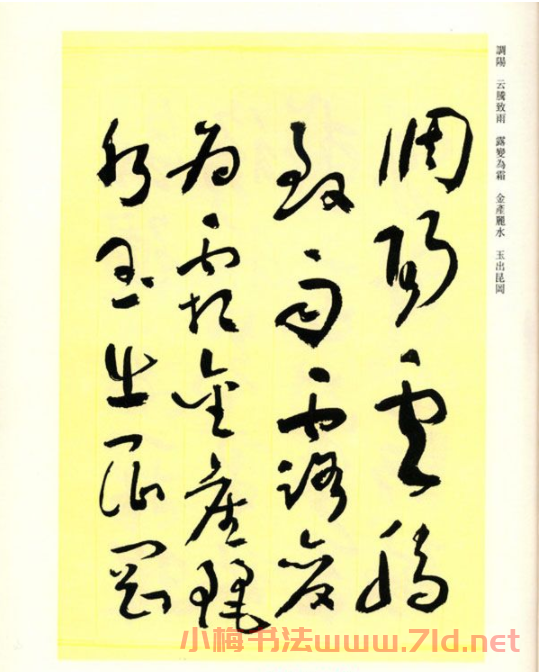 調陽 云騰致雨 露變為霜 金產麗水 玉出昆岡
調陽雲騰
致雨露變
為霜金產麗
水玉出崑岡
小梅书法www.7ld.net